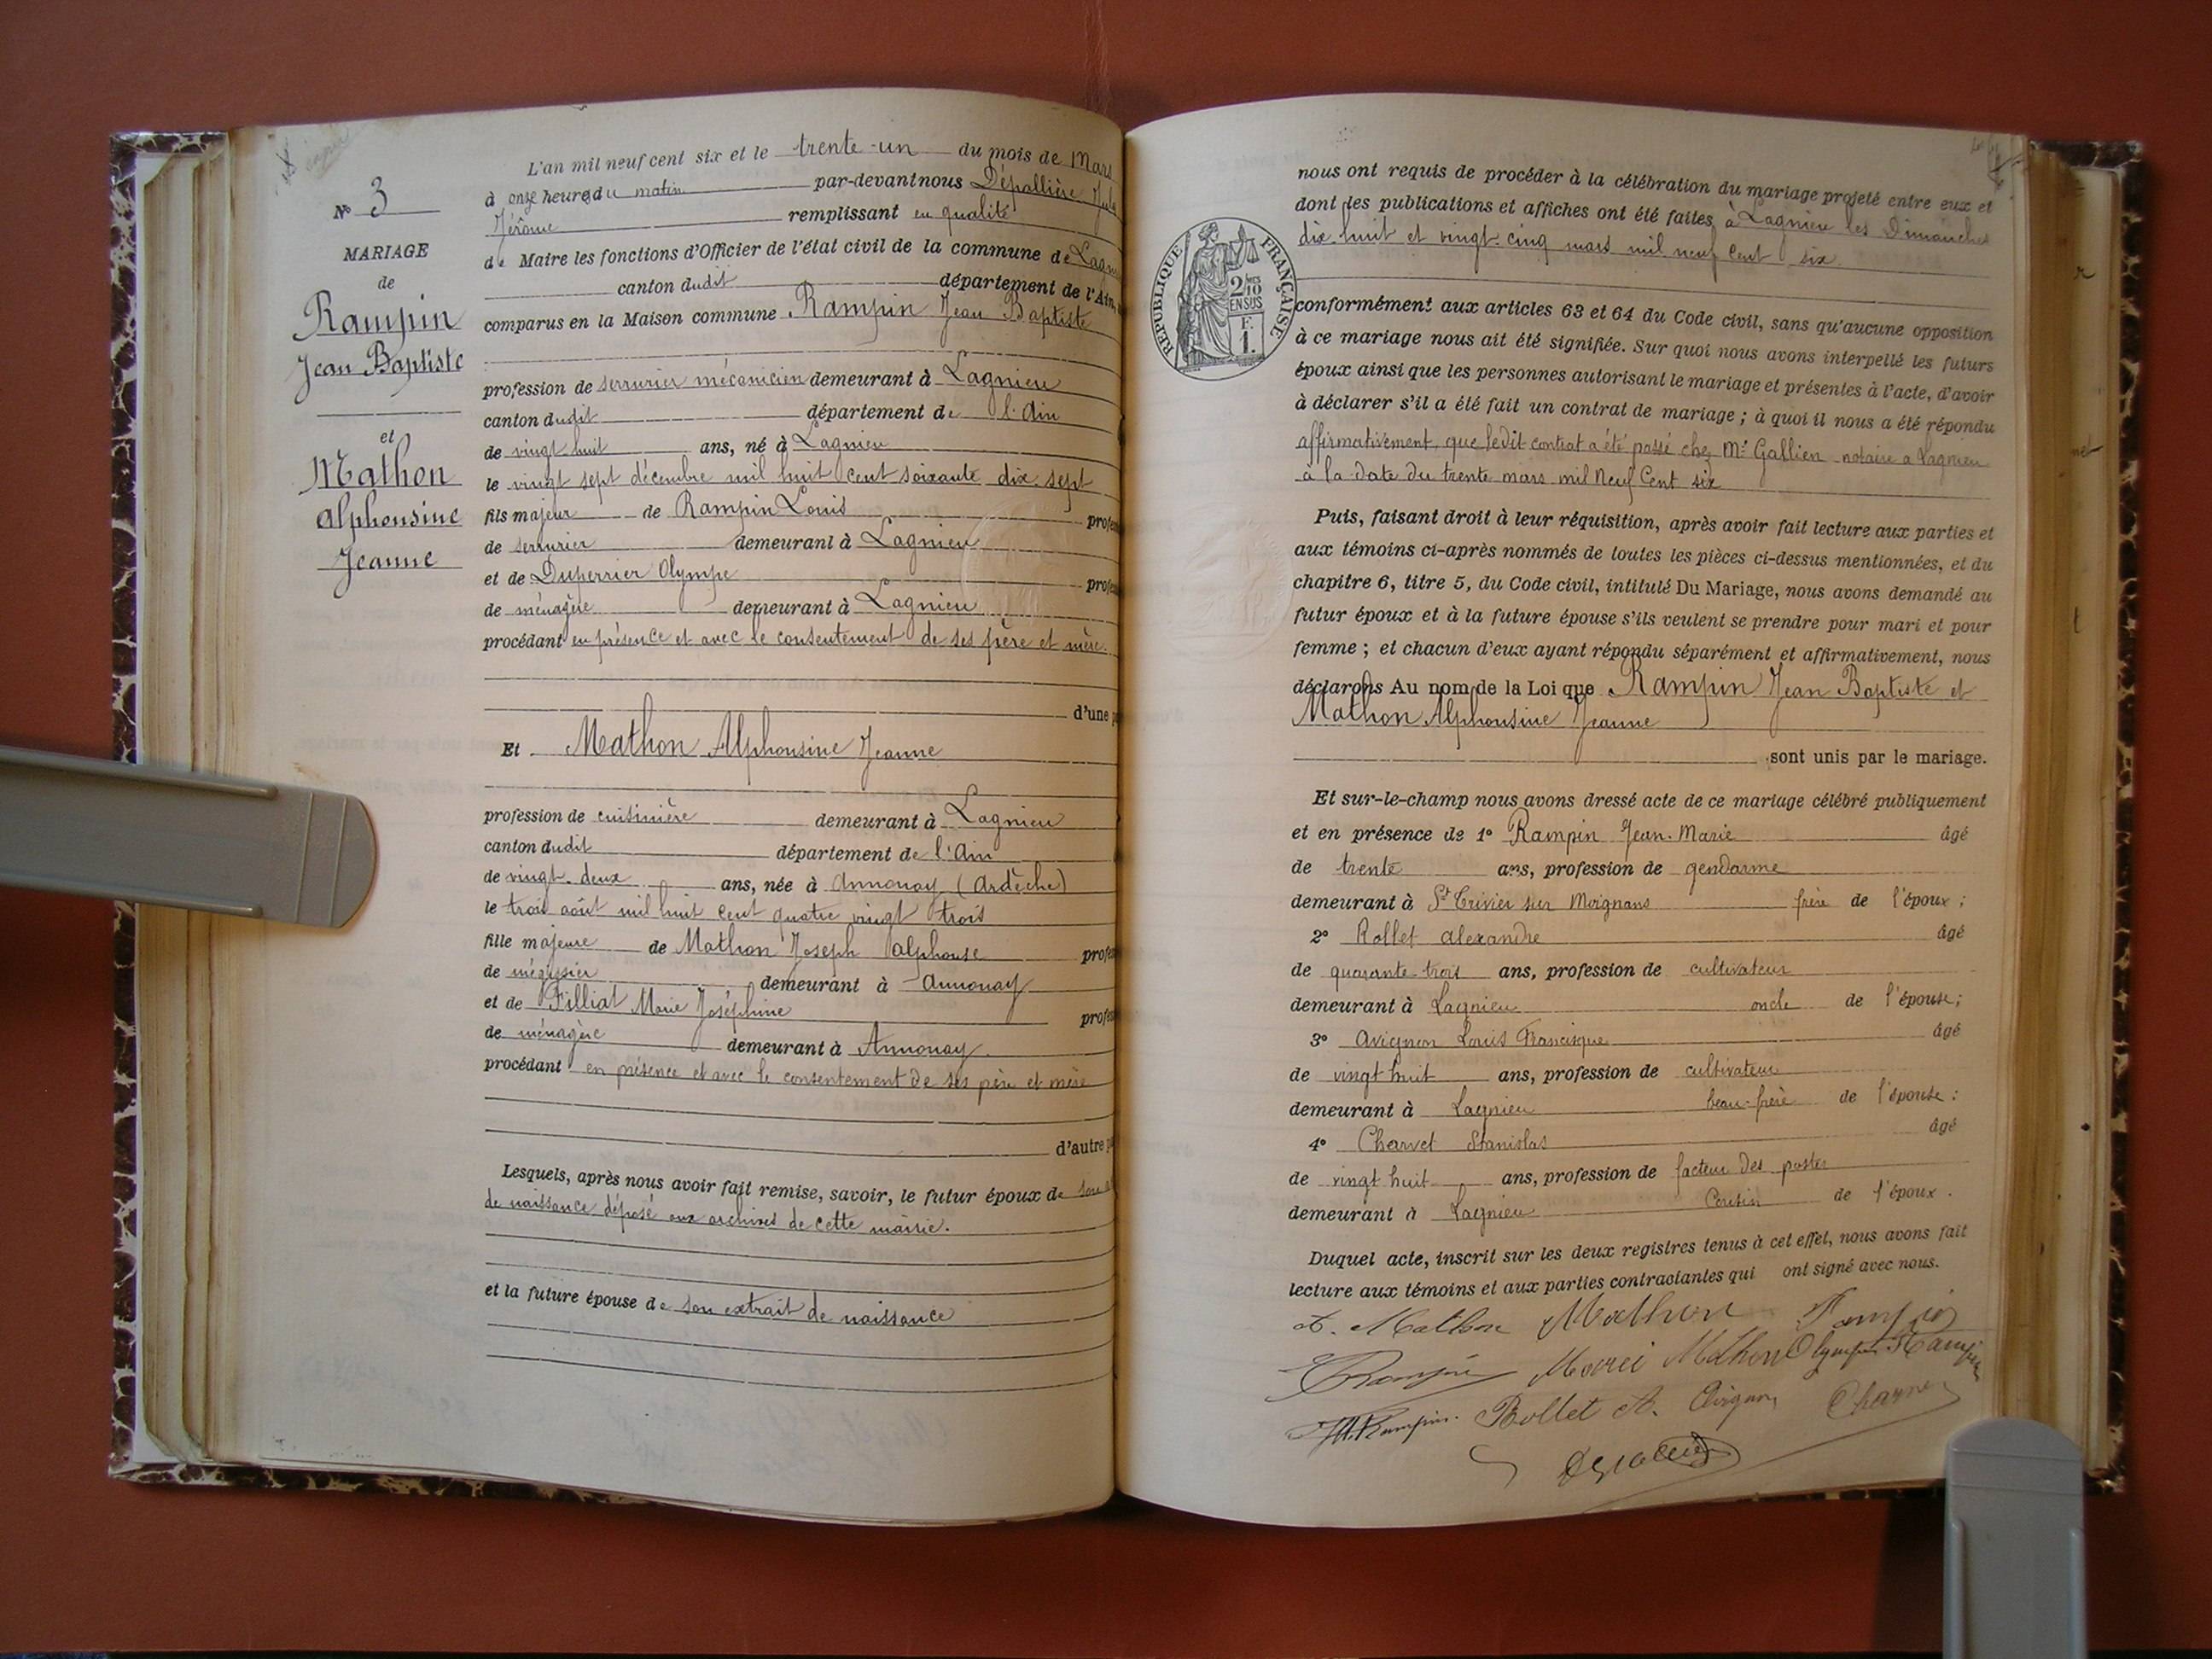 N° 3
MARIAGE
de
Rampin
Jean Baptiste
et
Mathon
Alphonsine
Jeanne
L'an mil neuf cent six et le trente-un du mois de Mars
à onze heures du matin par-devant nous Dépallière Jule
Jérôme remplissant en qualité
de Maire les fonctions d'Officier de l'état civil de la commune de Lagn
canton dudit département de l'Ain,
comparus en la Maison commune Rampin Jean Baptiste
profession de serrurier mécanicien demeurant à Lagnieu
canton dudit département de l'Ain
de vingt huit ans, né à Lagnieu
le vingt sept décembre mil huit cent soixante dix sept
fils majeur de Rampin Louis profes
de serrurier demeurant à Lagnieu
et de Duperrier Olympe profes
de ménagère demeurant à Lagnieu
procédant en présence et avec le consentement de ses père et mère.
d'une p
Et Mathon Alphonsine Jeanne
profession de cuisinière demeurant à Lagnieu
canton dudit département de l'Ain
de vingt-deux ans, née à Annonay (Ardèche)
le trois août mil huit cent quatre vingt trois
fille majeure de Mathon Joseph Alphonse profes
de mégissier demeurant à Annonay
et de Filliat Marie Joséphine profes
de ménagère demeurant à Annonay.
procédant en présence et avec le consentement de ses père et mère
d'autre p
Lesquels, après nous avoir fait remise, savoir, le futur époux de son
de naissance déposé aux archives de cette mairie.
et la future épouse de son extrait de naissance
nous ont requis de procéder à la célébration du mariage projeté entre eux et
dont les publications et affiches ont été faites, à Lagnieu les Dimanches
dix huit et vingt-cinq mars mil neuf cent six
RÉPUBLIQUE FRANÇAISE
2/10 EN SUS
F. 1.
conformément aux articles 63 et 64 du Code civil, sans qu'aucune opposition
à ce mariage nous ait été signifiée. Sur quoi nous avons interpellé les futurs
époux ainsi que les personnes autorisant le mariage et présentes à l'acte, d'avoir
à déclarer s'il a été fait un contrat de mariage ; à quoi il nous a été répondu
affirmativement, que ledit contrat a été passé chez Me Gallien notaire a Lagnieu
à la date du trente mars mil Neuf Cent six
Puis, faisant droit à leur réquisition, après avoir fait lecture aux parties et
aux témoins ci-après nommés de toutes les pièces ci-dessus mentionnées, et du
chapitre 6, titre 5, du Code civil, intitulé Du Mariage, nous avons demandé au
futur époux et à la future épouse s'ils veulent se prendre pour mari et pour
femme ; et chacun d'eux ayant répondu séparément et affirmativement, nous
déclarons Au nom de la Loi que Rampin Jean Baptiste et
Mathon Alphonsine Jeanne
sont unis par le mariage.
Et sur-le-champ nous avons dressé acte de ce mariage célébré publiquement
et en présence de 1° Rampin Jean-Marie âgé
de trente ans, profession de gendarme
demeurant à St Trivier sur Moignans frère de l'époux ;
2° Rollet Alexandre âgé
de quarante trois ans, profession de cultivateur
demeurant à Lagnieu oncle de l'épouse ;
3° Avignon Louis Francisque âgé
de vingt huit ans, profession de cultivateur
demeurant à Lagnieu beau-frère de l'épouse :
4° Charvet Stanislas âgé
de vingt huit ans, profession de facteur des postes
demeurant à Lagnieu Cousin de l'époux.
Duquel acte, inscrit sur les deux registres tenus à cet effet, nous avons fait
lecture aux témoins et aux parties contractantes qui ont signé avec nous.
A. Mathon Mathon Rampin
Rampin Marie Mathon Olympe Rampin
JM Rampin. Rollet A. Avignon Charvet